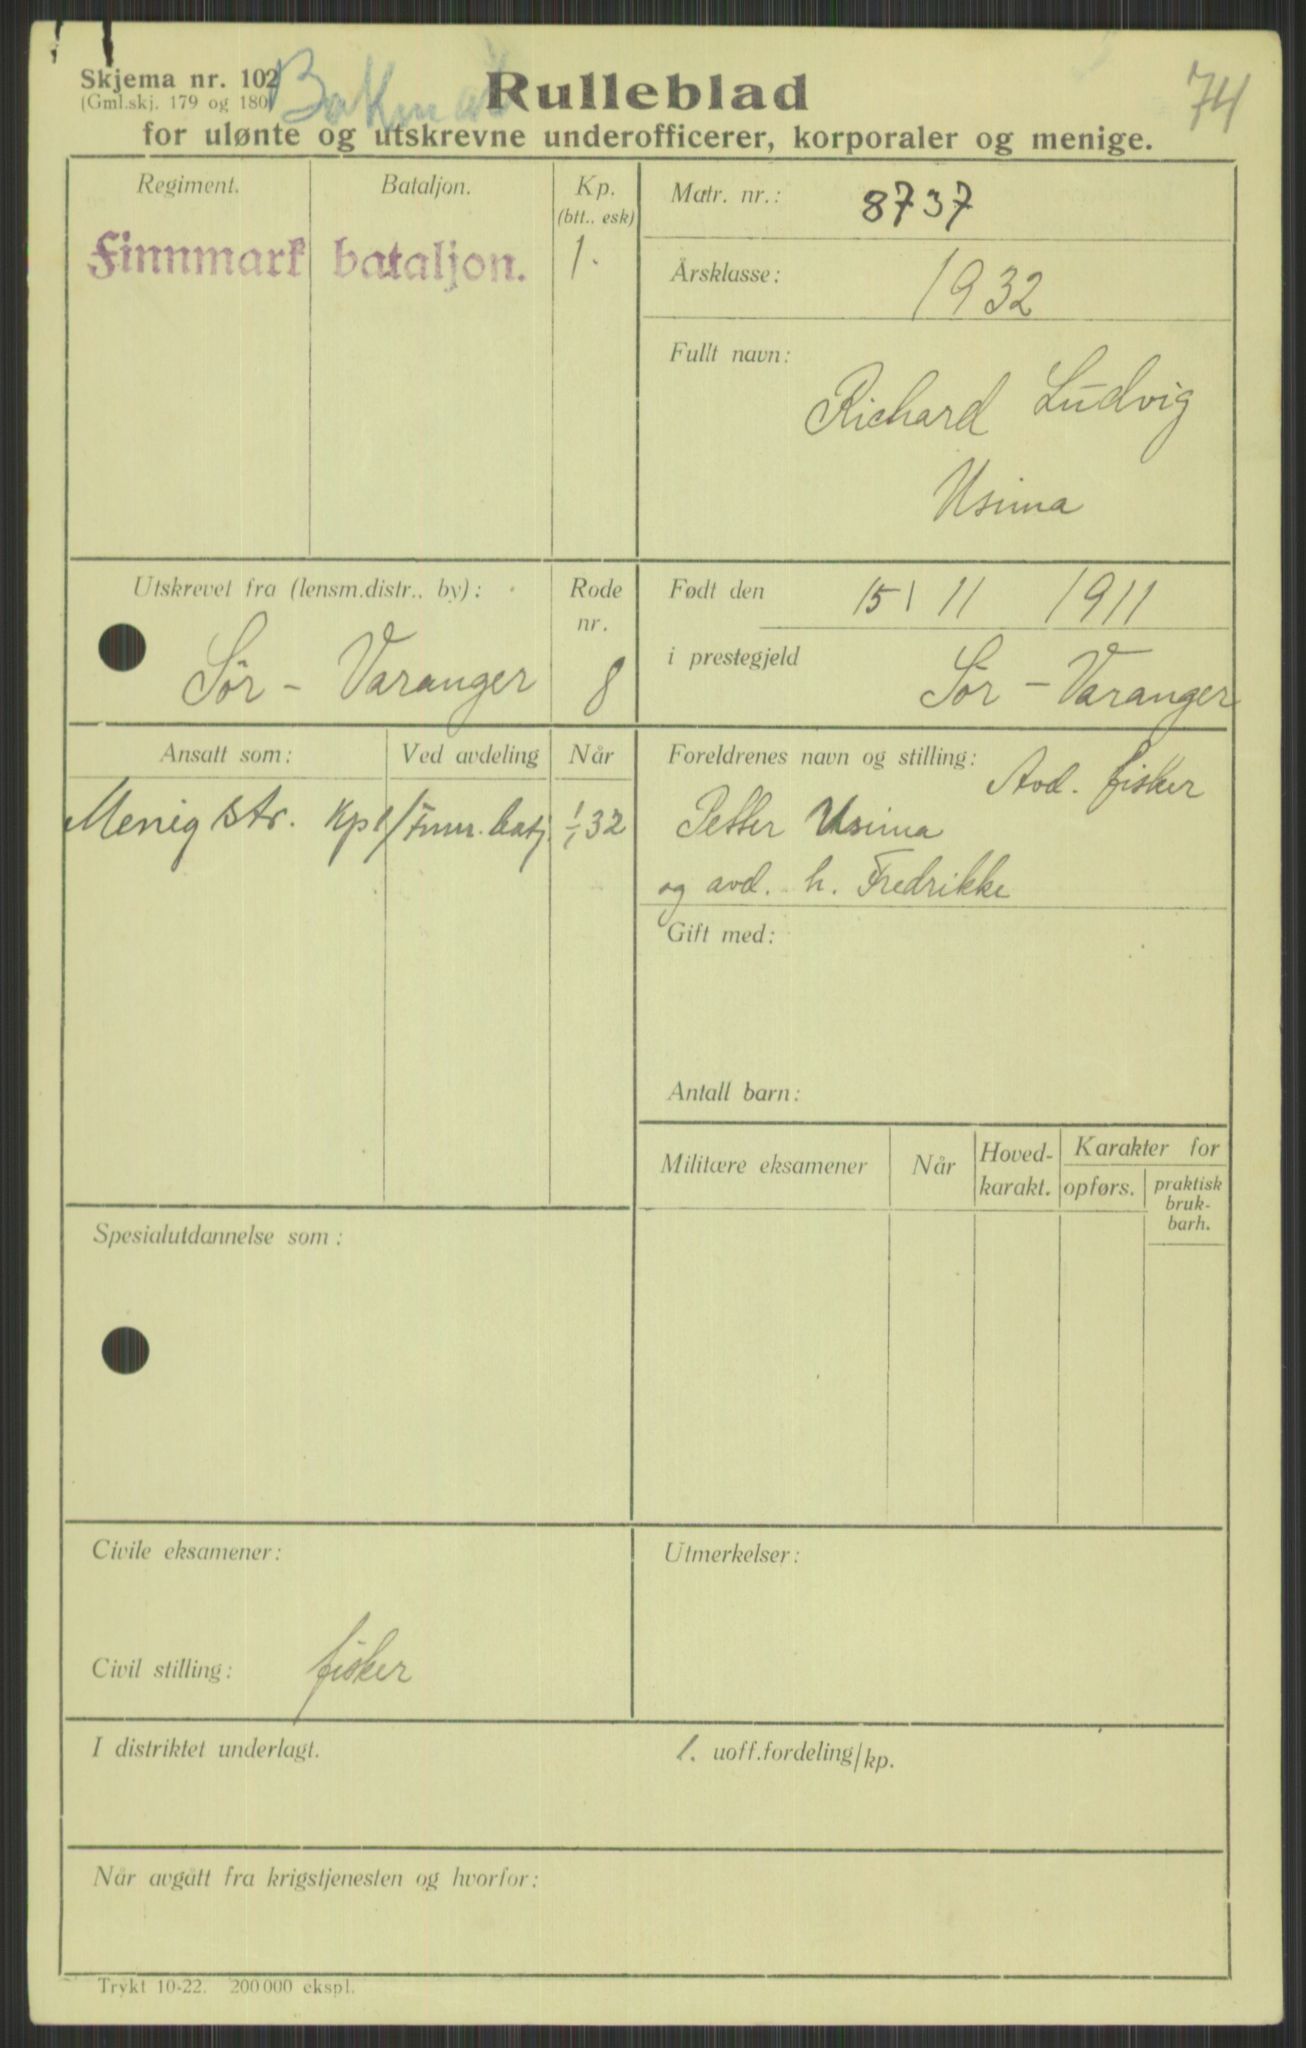 Skjema nr. 102
(Gml.skj. 179 og 180)
Rulleblad
74
for ulønte og utskrevne underofficerer, korporaler og menige.
Regiment.
Bataljon.
Kp.
(btt.. esk)
Finnmark bataljon.
1.
Matr. nr.: 8737
Årsklasse: 1932
Fullt navn:
Richard Ludvig
Usima
Utskrevet fra (lensm.distr.. by):
Sør - Varanger
Rode
nr.
8
Født den 15/ 11 1911
i prestegjeld Sør - Varanger
Ansatt som:
Ved avdeling
Når
Menig str. Kp 1/Finnm. batj. 1/1 32
Foreldrenes navn og stilling: Avd. fisker
Petter Usima
og avd. h. Fredrikke
Gift med:
Antall barn:
Militære eksamener
Når
Hoved-
karakt.
Karakter for
opførs.
praktisk
bruk-
barh.
Spesialutdannelse som:
Civile eksamener:
Civil stilling: fisker
Utmerkelser:
I distriktet underlagt.
1. uoff.fordeling/kp.
Når avgått fra krigstjenesten og hvorfor:
Trykt 10-22. 200000 ekspl.